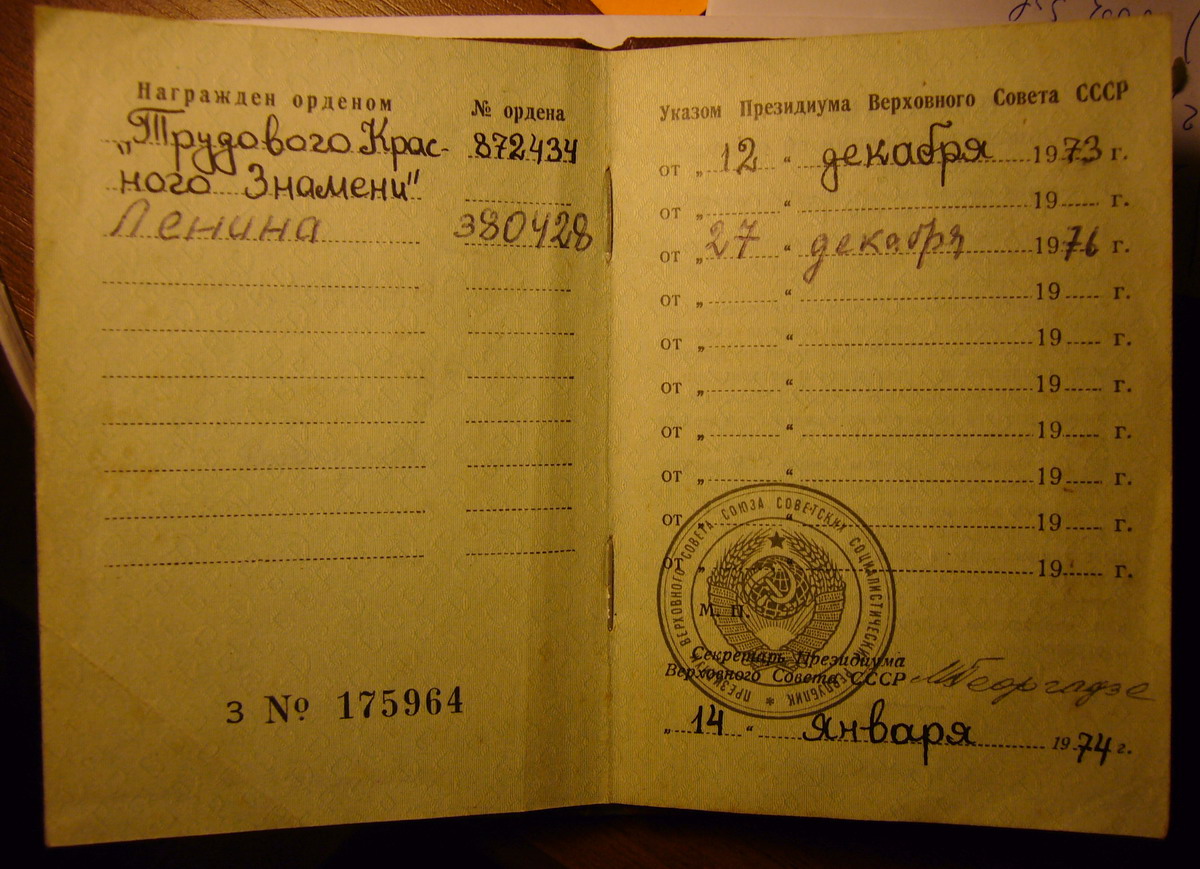 Награжден орденом
№ ордена
„Трудового Крас-
872434
ного Знамени"
Ленина
380428
З № 175964
Указом Президиума Верховного Совета СССР
от „ 12 “ декабря 1973 г.
от „ “ 19 г.
от „ 27 “ декабря 1976 г.
от „ “ 19 г.
от „ “ 19 г.
от „ “ 19 г.
от „ “ 19 г.
от „ “ 19 г.
от „ “ 19 г.
от „ “ 19 г.
ПРЕЗИДИУМ ВЕРХОВНОГО СОВЕТА СОЮЗА СОВЕТСКИХ СОЦИАЛИСТИЧЕСКИХ РЕСПУБЛИК *
М. П.
Секретарь Президиума
Верховного Совета СССР
МГеоргадзе
„ 14 “ января 1974 г.